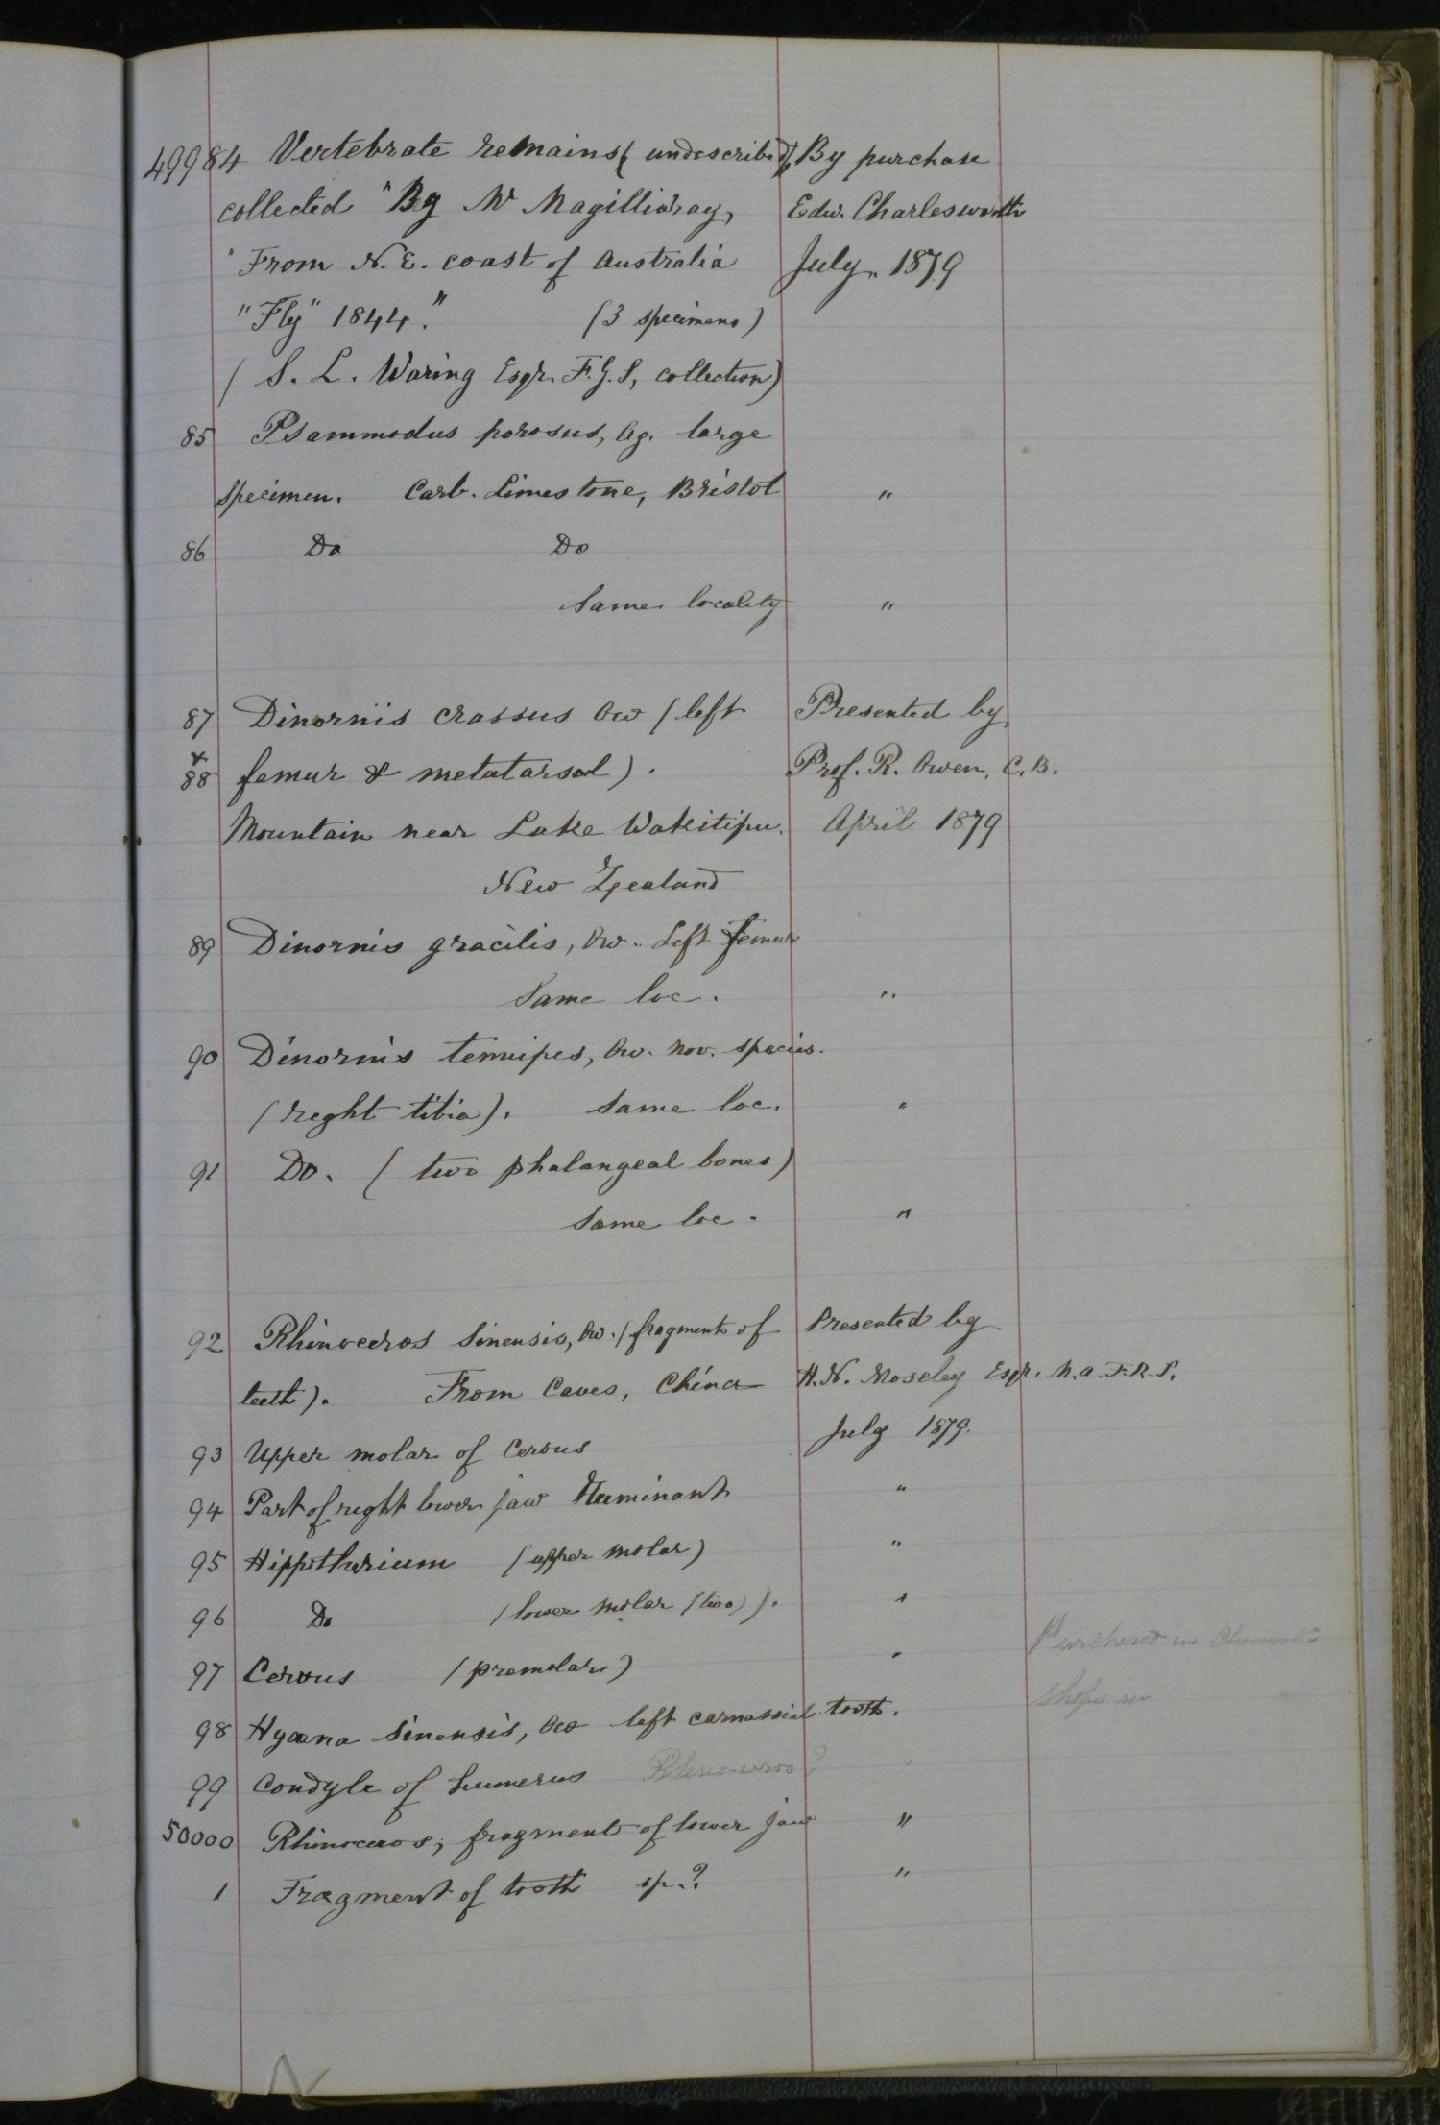 49984 Vertebrate remains (undescribed), By purchase
collected "By Mr Magillivray, Edw. Charlesworth
"From N.E. coast of Australia July, 1879
"Fly" 1844." (3 specimens)
(S. L. Waring Esqr. F.G.S, collection)
85 Psammodus porosus, Ag. large
specimen. Carb. Limestone, Bristol "
86 Do Do
Same locality "
87 Dinornis crassus Ow (left Presented by
&
88 femur & metatarsal). Prof. R. Owen, C.B.
Mountain near Lake Wakitipu. April 1879
New Zealand
89 Dinornis gracilis, Ow. Left femur
Same loc. "
90 Dinornis tenuipes, Ow. nov. species.
(right tibia). Same loc. "
91 Do. (two phalangeal bones)
Same loc. "
92 Rhinoceros Sinensis, Ow. (fragments of Presented by
teeth). From Caves, China H.N. Moseley Esqr. M.A. F.R.S.
93 Upper molar of Cervus July 1879.
94 Part of right lower jaw Ruminant "
95 Hippotherium (upper molar) "
96 Do (lower molar (two)). "
97 Cervus (premolar) " Purchased in
98 Hyaena Sinensis, Ow left carnassial tooth. Shops in
99 Condyle of humerus Rhinoceros?
50000 Rhinoceros; fragment of lower jaw "
1 Fragment of tooth sp.? "